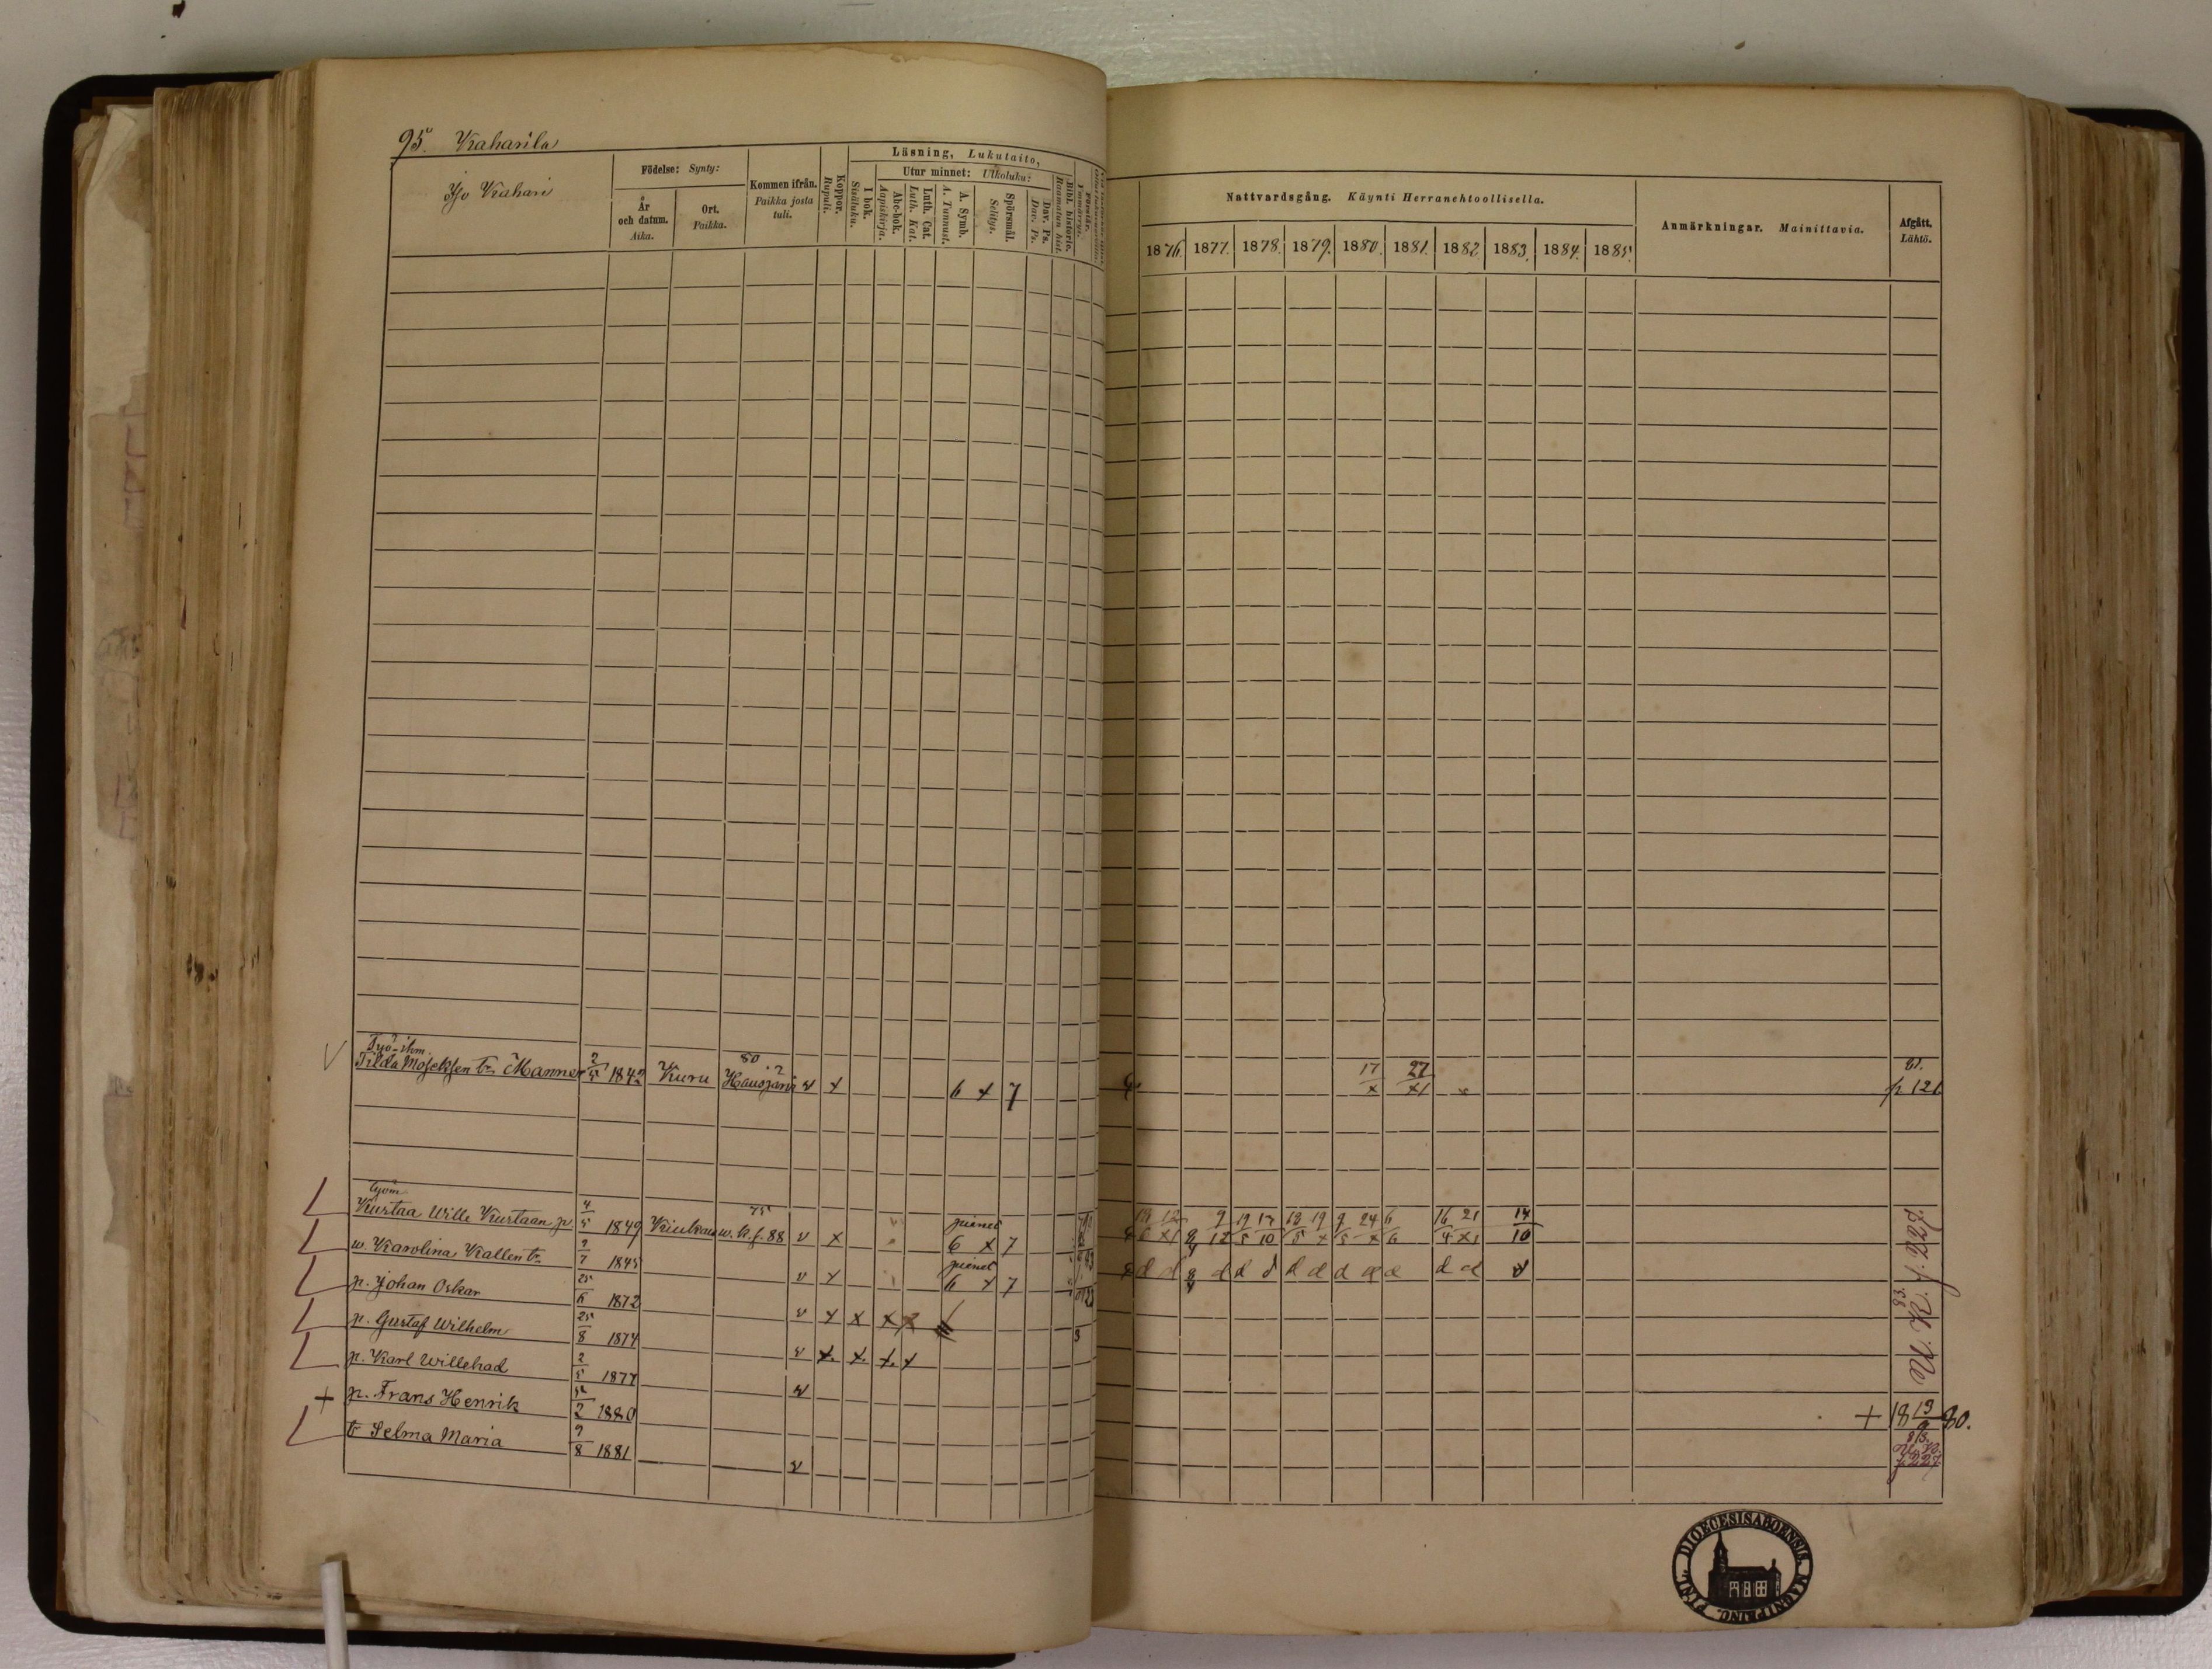 95. Kaharila
Iso Kahari
Födelse: Synty:
År och datum. Aika.
Ort. Paikka.
Kommen ifrån. Paikka josta tuli.
Koppor. Rupuli.
Läsning, Lukutaito,
I bok. Sisäluku.
Utur minnet: Ulkoluku:
Abc-bok. Aapiskirja.
Luth. Cat. Luth. Kat.
A. Symb. A. Tunnust.
Spörsmål. Selitys.
Dav. Ps. Dav. Ps.
Bibl. historie. Raamatun hist.
Förstår. Ymmärrys.
Nattvardsgång. Käynti Herranehtoollisella.
1876. 1877. 1878. 1879. 1880. 1881. 1882. 1883. 1884. 1885.
Anmärkningar. Mainittavia.
Afgått. Lähtö.
Työ-ihm.
Tilda Moseksen tr. Manner 2/5 1842 Kuru 80 Hausjärvi v x 6 x 7 17/x 27/x1 x 81. p. 121
Työm.
Kustaa Wille Kustaan p. 4/5 1849 Kiukais 75 w. k. s. 88 v x pienet 6 x 7 9/12 19/5 17/10 18/5 19/x 9/5 24/x 6/6 16/4 21/x1 14/10
w. Karolina Kallen tr. 9/7 1845 v x pienet 6 x 7 d d d d d d d d d d d
p. Johan Oskar 25/6 1872 v x x x
p. Gustaf Wilhelm 25/8 1874 v x. x. x. x
p. Karl Willehad 2/5 1877 v
83. U. K. s. 227.
+ p. Frans Henrik 2 1880 + 18 19/9 80.
tr Selma Maria 9/8 1881 v 83. U. K. s. 227.
DIOECESIS ABOENSIS. MAGNI PRINC. FINL.